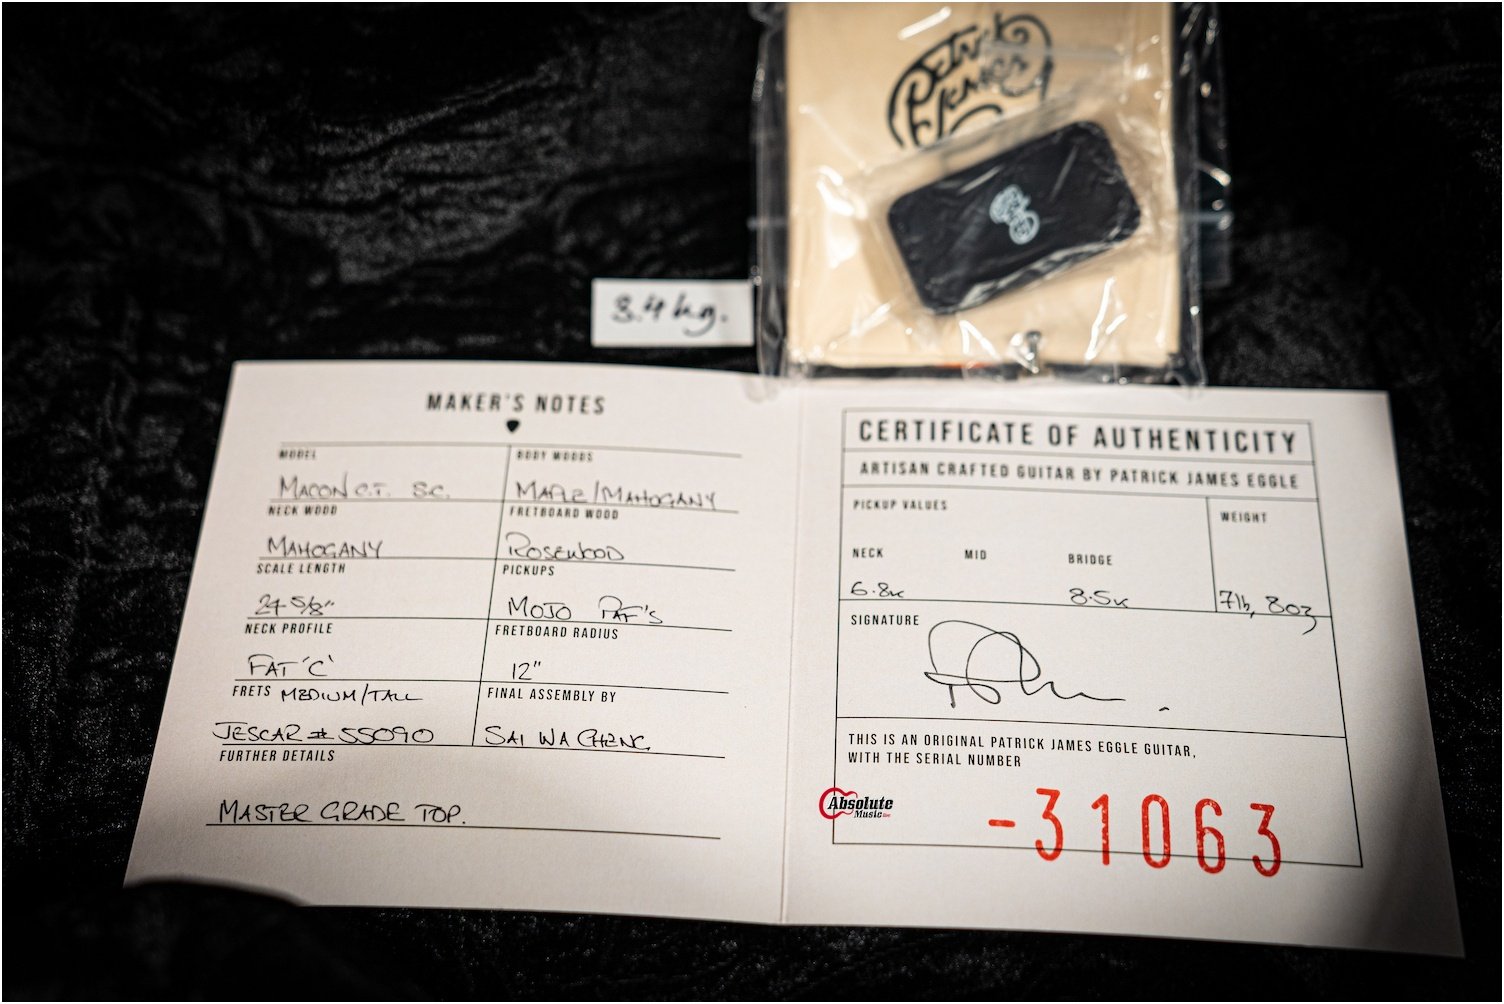 Patrick
James
3.4 kg.
MAKER'S NOTES
MODEL
MACON C.T. S.C.
BODY WOODS
MAPLE/MAHOGANY
NECK WOOD
MAHOGANY
FRETBOARD WOOD
ROSEWOOD
SCALE LENGTH
24 5/8"
PICKUPS
MOJO PAF'S
NECK PROFILE
FAT 'C'
FRETBOARD RADIUS
12"
FRETS MEDIUM/TALL
JESCAR # 55090
FINAL ASSEMBLY BY
SAI WA CHENG
FURTHER DETAILS
MASTER GRADE TOP.
CERTIFICATE OF AUTHENTICITY
ARTISAN CRAFTED GUITAR BY PATRICK JAMES EGGLE
PICKUP VALUES
WEIGHT
NECK MID BRIDGE
6.8K 8.5K 7lb, 8oz
SIGNATURE
THIS IS AN ORIGINAL PATRICK JAMES EGGLE GUITAR,
WITH THE SERIAL NUMBER
-31063
Absolute
Music